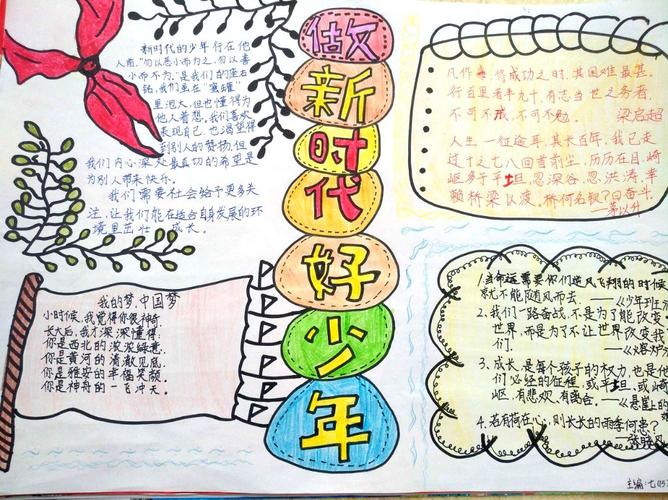 做
新
时
代
好
少
年
新时代的少年行在他
人前,“勿以恶小而为之,勿以善
小而不为,”是我们的座右
铭,我们虽在“蜜罐”
里泡大,但也懂得为
他人着想,我们喜欢
表现自己,也渴望得
到别人的赞扬,但
我们内心深处最真切的希望是
为别人带来快乐。
我们需要社会给予更多关
注,让我们能在适合自身发展的环
境里茁壮成长。
我的梦,中国梦
小时候,我觉得你很神奇
长大后,我才深深懂得
你是西北的滚滚绿意
你是黄河的清澈见底
你是雅安的幸福笑颜
你是神舟的一飞冲天。
凡作事,将成功之时,其困难最甚。
行百里者半九十,有志当世之务者,
不可不戒,不可不勉。 梁启超
人生一征途耳,其长百年,我已走
过十之七八回首前尘,历历在目,崎
岖多于平坦,忽深谷,忽洪涛,幸
赖桥梁以渡,桥何名欤?曰奋斗。
——茅以升
1,当命运需要你们逆风飞翔的时候
就不能随风而去。 ——《少年班》
2、我们一路奋战,不是为了能改变
世界,而是为了不让世界改变我
们。
3、成长,是每个孩子的权力,也是他
们必经的征程,或平坦、或崎
岖,有悲欢、有离合。 ——《悬崖上的
4.若有荷在心,则长长的雨季何患?
主编:七(15)